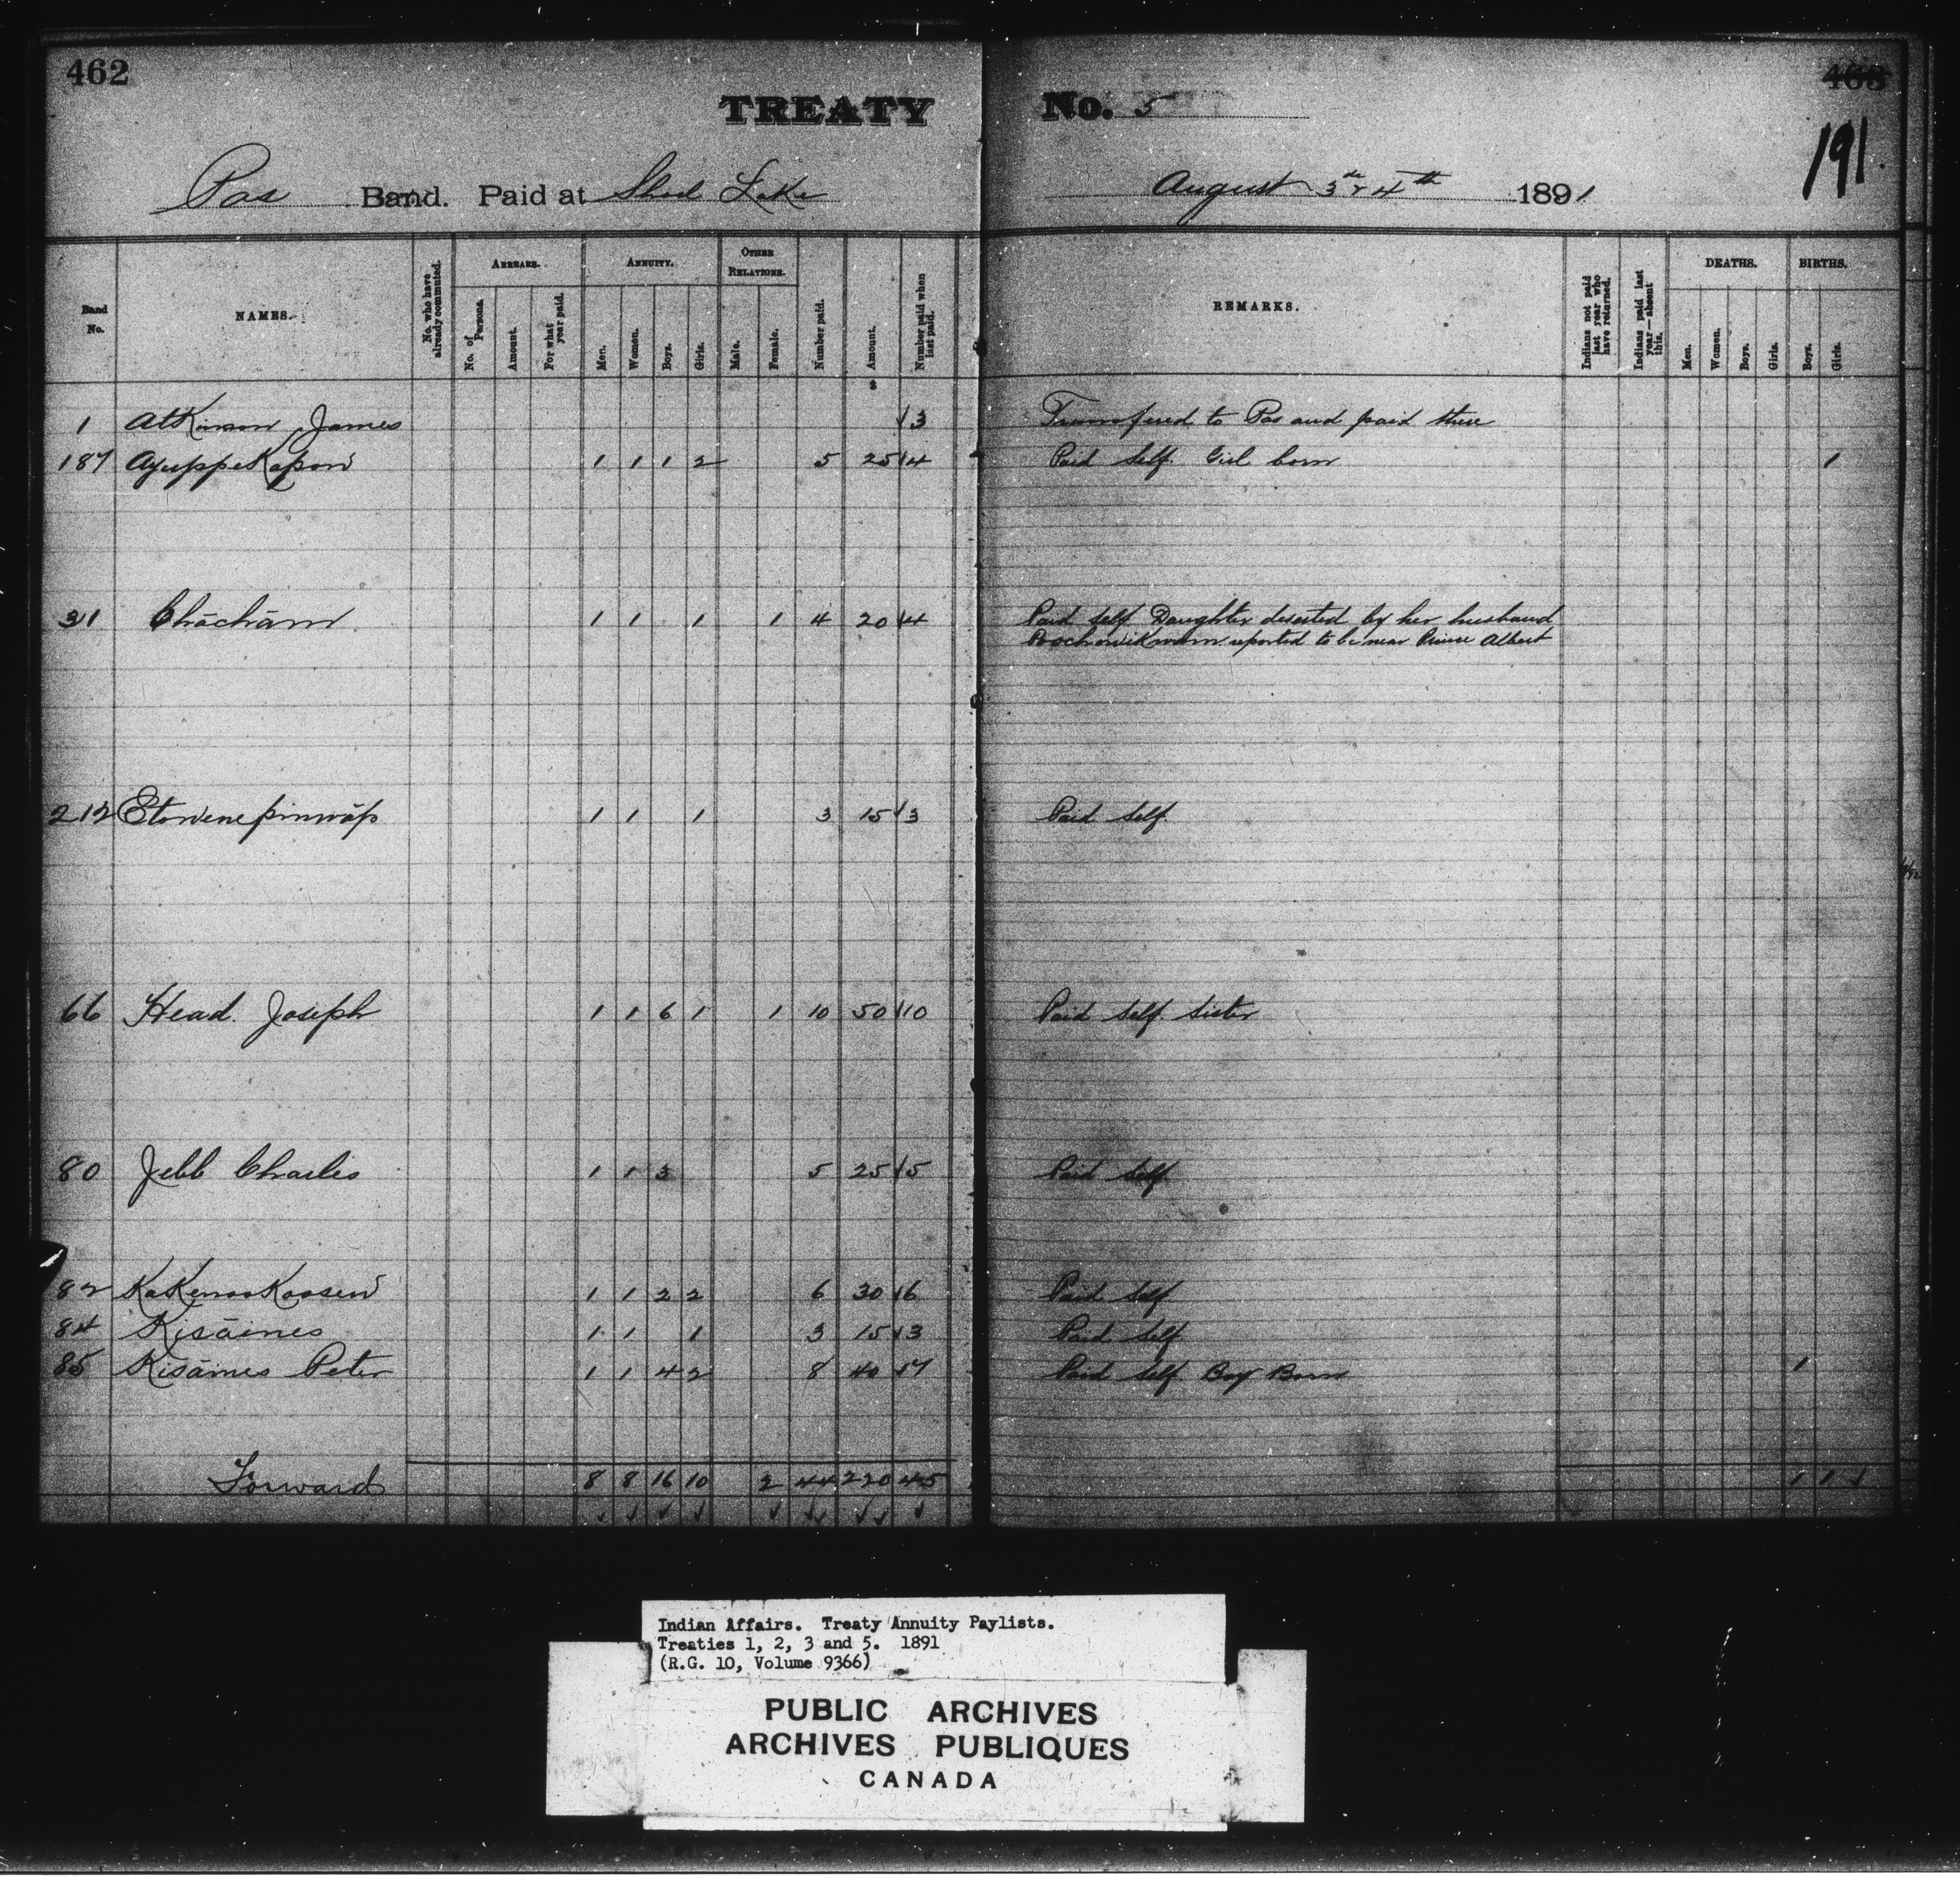 462
TREATY No. 5
463
191.
Pas Band. Paid at Shoal Lake August 3rd & 4th 1891
Band No. NAMES. No. who have already commuted. ARREARS. No. of Persons. Amount. For what year paid. ANNUITY. Men. Women. Boys. Girls. OTHER RELATIONS. Male. Female. Number paid. $ Amount. Number paid when last paid. REMARKS. Indians not paid last year who have returned. Indians paid last year—absent this. DEATHS. Men. Women. Boys. Girls. BIRTHS. Boys. Girls.
1 Atkinson, James 3 Transfered to Pas and paid there
187 Ayuppekapow 1 1 1 2 5 25 4 Paid Self. Girl born 1
31 Chāchām 1 1 1 1 4 20 4 Paid Self Daughter deserted by her husband
reported to be near Prince Albert
212 Etowenepinwāp 1 1 1 3 15 3 Paid Self.
66 Head. Joseph 1 1 6 1 1 10 50 10 Paid Self. Sister
80 Jebb Charles 1 1 3 5 25 5 Paid Self
82 KaKenooKoosew 1 1 2 2 6 30 6 Paid Self
84 Kisāines 1 1 1 3 15 3 Paid Self
85 Kisāines Peter 1 1 4 2 8 40 7 Paid Self Boy Born 1
Forward 8 8 16 10 2 44 220 45 1 1
Indian Affairs. Treaty Annuity Paylists.
Treaties 1, 2, 3 and 5. 1891
(R.G. 10, Volume 9366)
PUBLIC ARCHIVES
ARCHIVES PUBLIQUES
CANADA